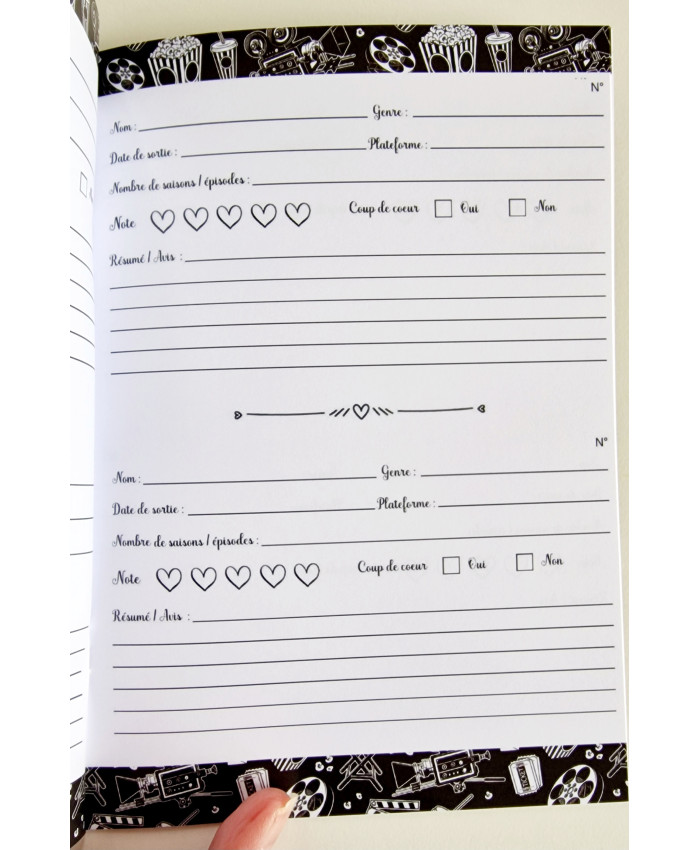 N°
Nom : Genre :
Date de sortie : Plateforme :
Nombre de saisons / épisodes :
Note Coup de coeur Oui Non
Résumé / Avis :
N°
Nom : Genre :
Date de sortie : Plateforme :
Nombre de saisons / épisodes :
Note Coup de coeur Oui Non
Résumé / Avis :
TICKET